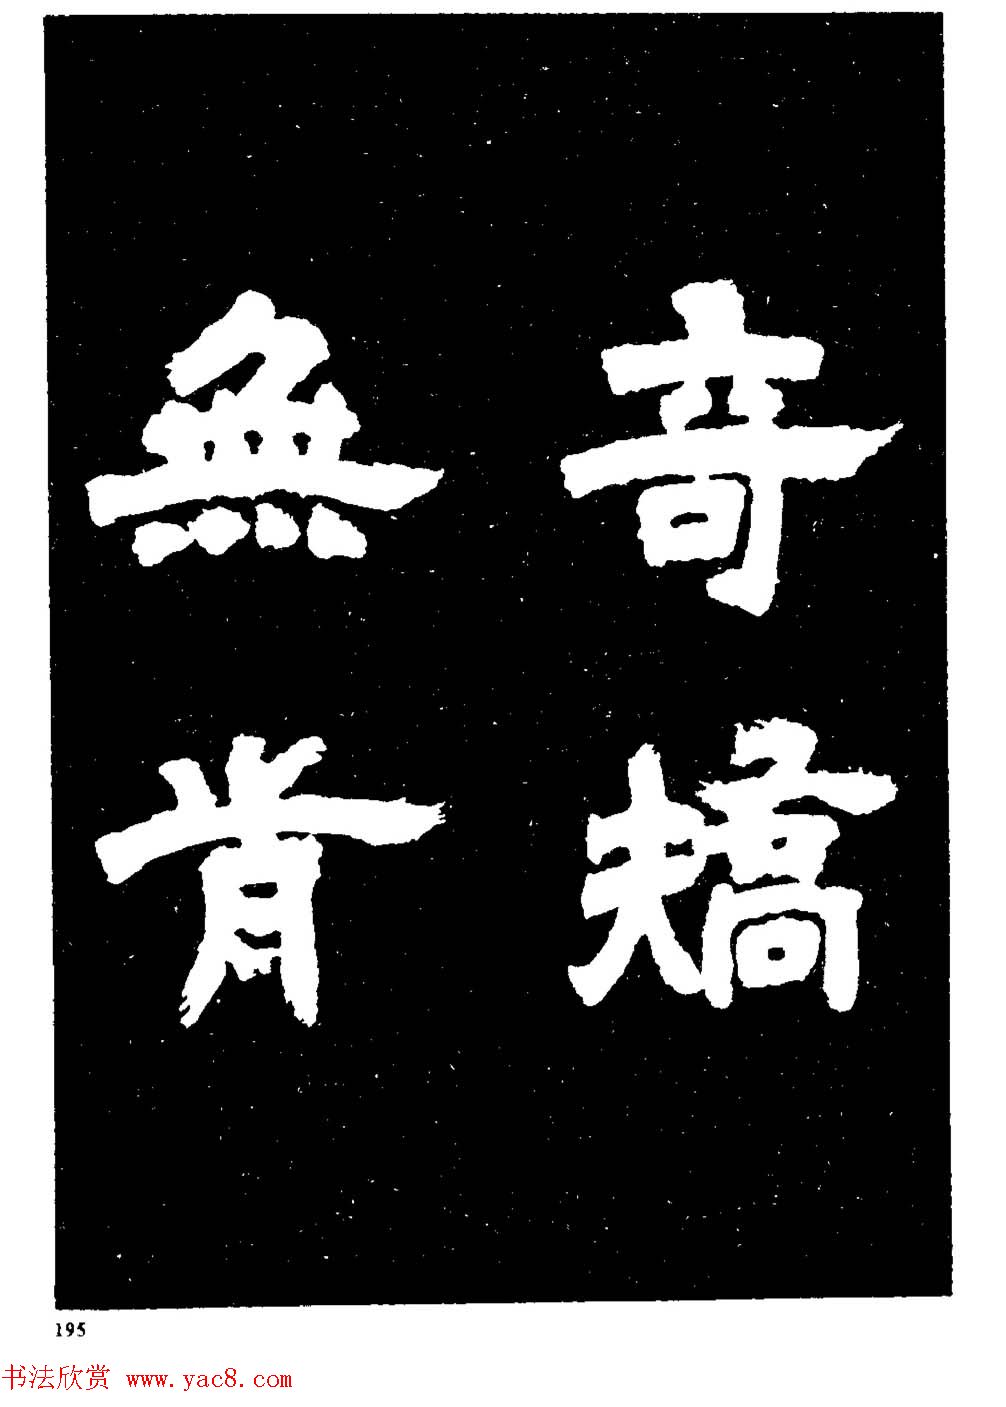 奇矯
無肯
195
书法欣赏 www.yac8.com